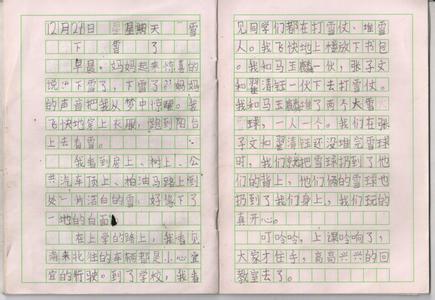 12月24日 星期天 雪
下雪了
早晨，妈妈起来惊喜的
说：“下雪了，下雪了。”妈妈
的声音把我从梦中惊醒。我
飞快地穿上衣服，跑到阳台
上去看雪。
我看到房上、树上、公
共汽车顶上、柏油马路上到
处一片洁白的雪，好像下了
一地的白面。
在上学的路上，我看见
南来北往的车辆都是小心宜
宜的行驶。到了学校，我看
见同学们都在打雪仗、堆雪
人。我飞快地上楼放下书包
。我和马玉麟一伙，张子文
和翟清钰一伙下去打雪仗。
我和马玉麟攒了两个大雪
球，一人一个。我们在张
子文和翟清钰还没堆完雪球
时，我们就把雪球扔到了他
们的背上，他们俩的雪球也
扔到了我们身上，我们玩的
真开心。
叮哈哈，上课哈响了，
大家才住手，高高兴兴的回
教室去了。